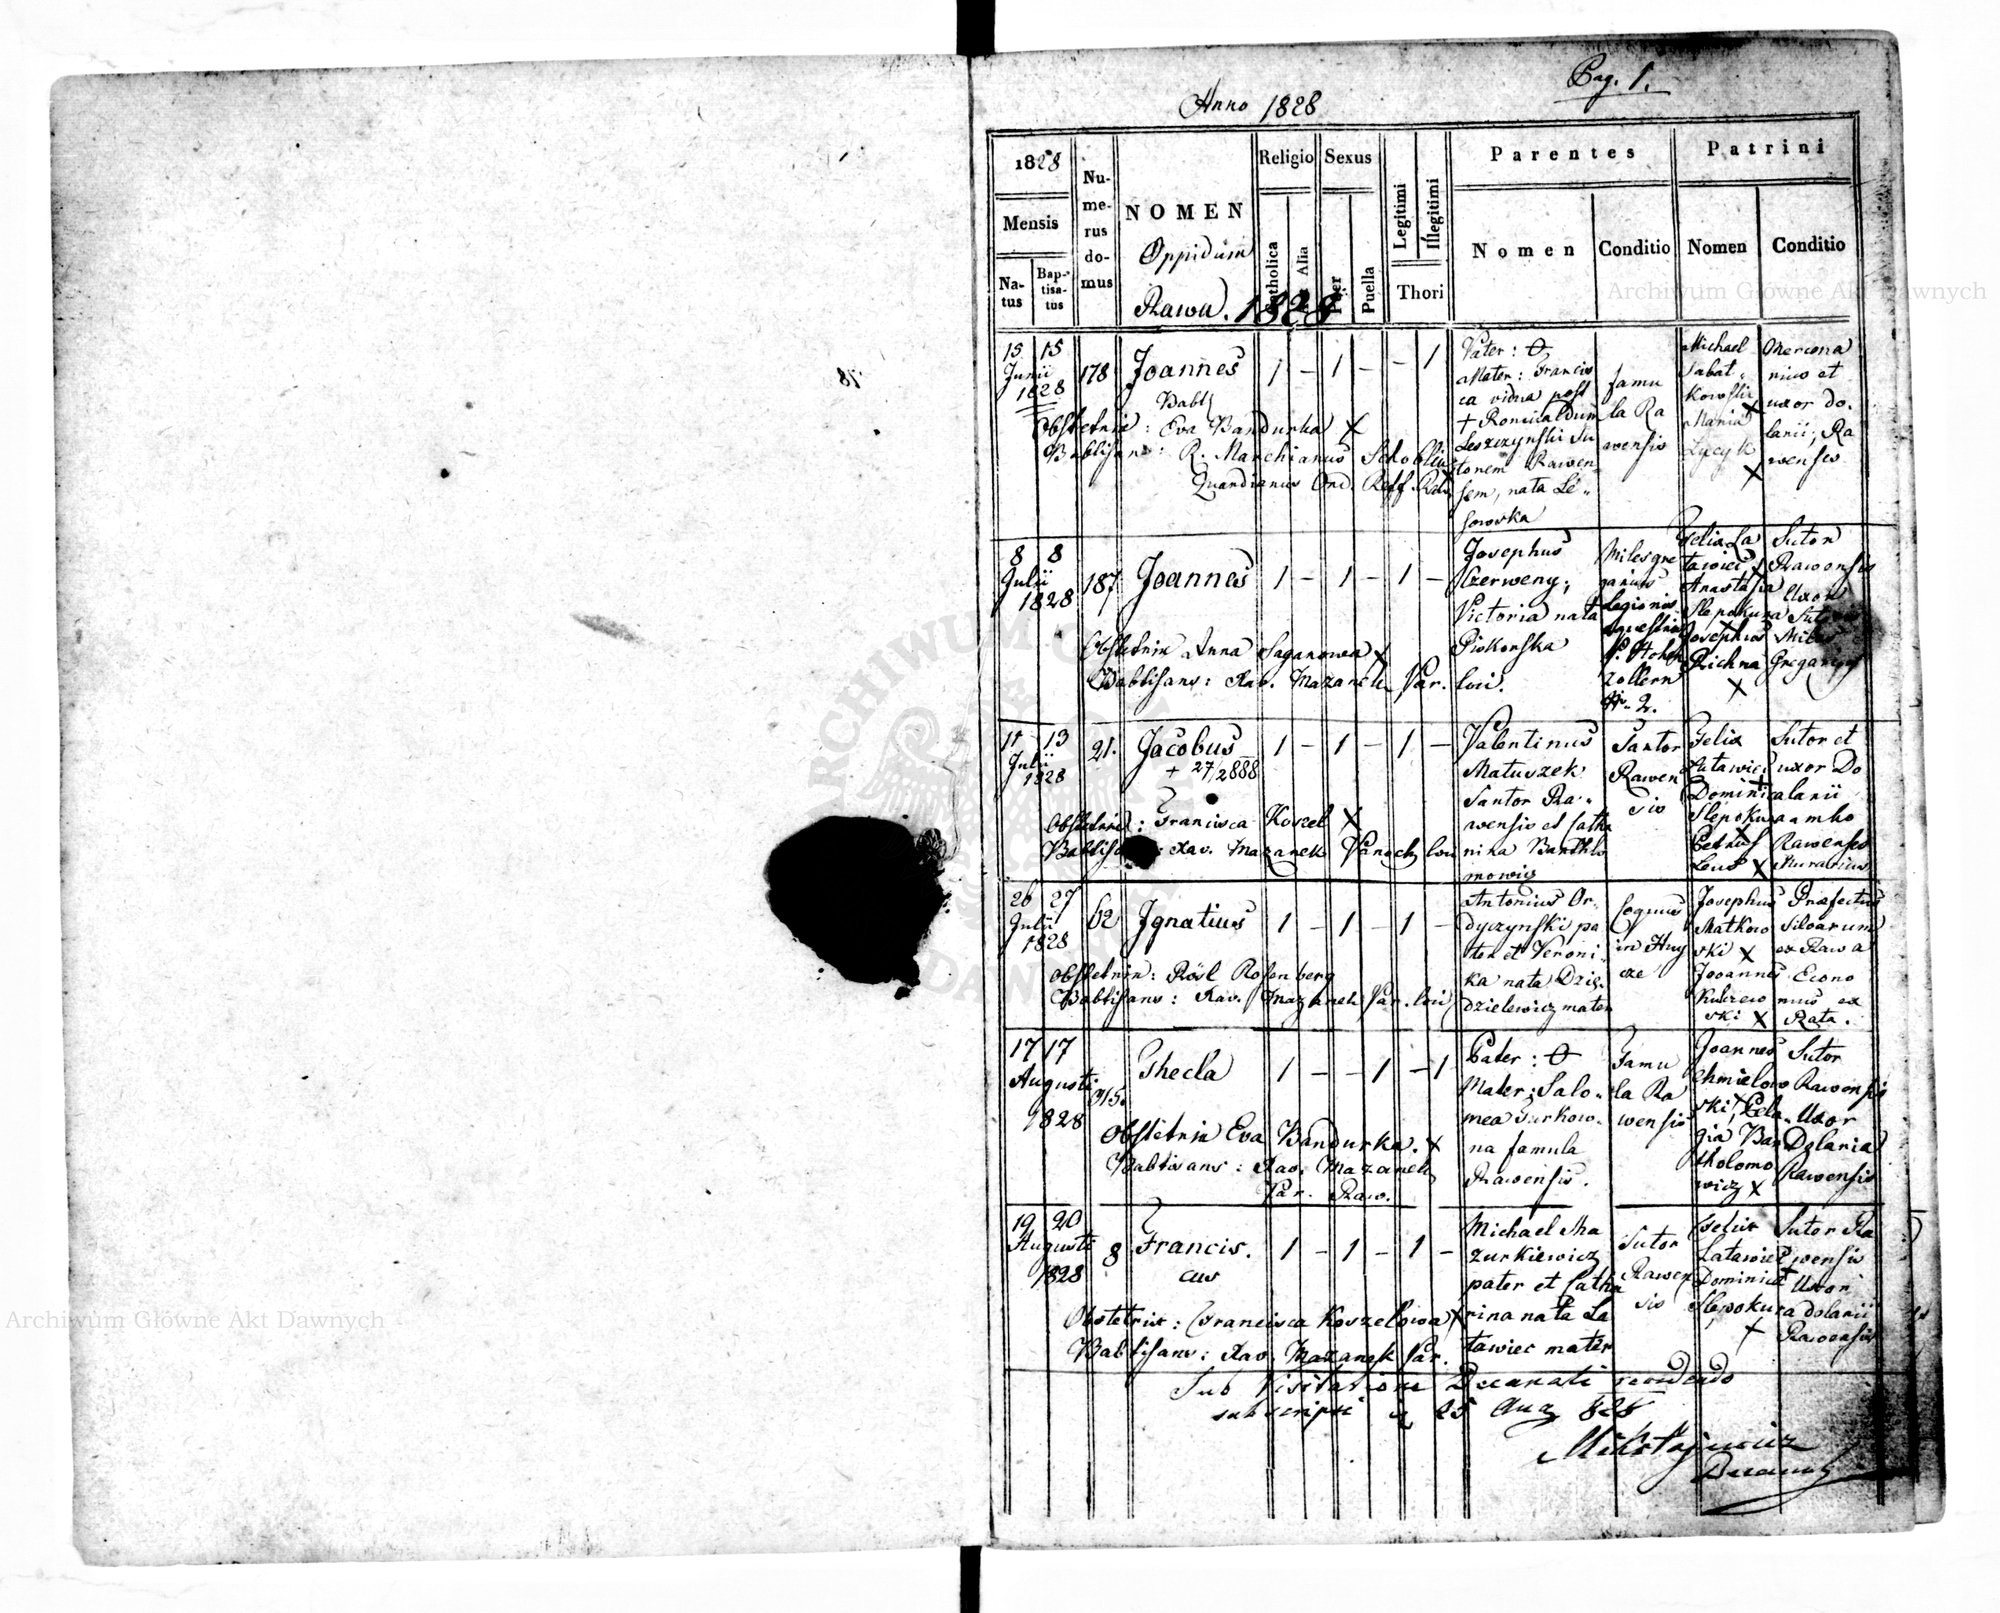 Pag. 1.
Anno 1828
1828
Mensis
Na-
tus
Bap-
tisa-
tus
Nu-
me-
rus
do-
mus
NOMEN
Oppidum
Rawa. 1828
Religio
Catholica
Alia
Sexus
Puer
Puella
Legitimi
Illegitimi
Thori
Parentes
Nomen
Conditio
Patrini
Nomen
Conditio
15 15
Junii
1828
178
Joannes
1 - 1 - - 1
Obstetrix: Eva Bandurka X
Babtisans: R. Marchianus
Quardianus Ord. Reff.
Pater: O
Mater: Francis
ca vidua post
+ Romualdum
Leszczynski Su
torem Rawen
sem, nata Le-
sowska
famu
la Ra
wensis
Michael
Sabat-
Kowski X
Maria
Lycyk
X
rius et
uxor do-
larii, Ra
wensis
8 8
Julii
1828
187
Joannes
1 - 1 - 1 -
Obstetrix Anna Saganowa X
Babtisans: Xav. Mazanek Par. loci.
Josephus
Czerweny,
Victoria nata
Piskorska
Miles gre
garius
Legionis
equestris
P. Hohen
zollern
N. 2.
Felix La
tawiec X
Anastasia
Slepokura
Josephus
Prichna
X
Sutor
Rawensis
Uxor
Sutoris
Miles
Gregarius
11 13
Julii
1828
21.
Jacobus
+ 27/2888
1 - 1 - 1 -
Obstetrix: Francisca Koszel X
Babtisans: Xav. Mazanek Paroch loci
Valentinus
Matuszek
Sartor Ra-
wensis et Catha
rina Barthlo
mowicz
Sartor
Rawen
sis
Felix
Latawiec
X
Dominica
Slepokura
X
Petrus
X
Sutor et
uxor Do
larii
ambo
Rawenses
Murarius
26 27
Julii
1828
62
Ignatius
1 - 1 - 1 -
Obstetrix: Rösl Rosenberg
Babtisans: Xav. Mazanek Par. loci
Antonius Or-
dyczynski pa
ter et Veroni-
ka nata Dzie-
dzielewicz mater
Coquus
in Huy
cze
Josephus
Matkow
ski X
Joannes
Kulczew
ski X
Præfectus
Silvarum
ex Rawa
Econo
mus ex
Rata.
17 17
Augusti
1828
Thecla
1 - - 1 - 1
Obstetrix Eva Bandurka. X
Babtisans: Xav. Mazanek
Par. Raw.
Pater: O
Mater: Salo-
mea Turkow-
na famula
Rawensis.
Famu
la Ra
wensis
Joannes
Chmielow
ski X, Pela-
gia Bar
tholomo
wicz X
Sutor
Rawensis
Uxor
Dolaria
Rawensis
19 20
Augusti
1828
8
Francis.
cus
1 - 1 - 1 -
Obstetrix: Francisca Koszelowa X
Babtisans: Xav. Mazanek Par.
Michael Ma
zurkiewicz
pater et Catha
rina nata La
tawiec mater
Sutor
Rawen
sis
Felix
Latawiec
X
Dominica
Slepokura
X
Sutor Ra
wensis
Uxor
dolarii
Rawensis
Sub Visitatione Decanali
subscripsi 25 Aug 828
Mikołajewicz
Decanus
Archiwum Główne Akt Dawnych
Archiwum Główne Akt Dawnych